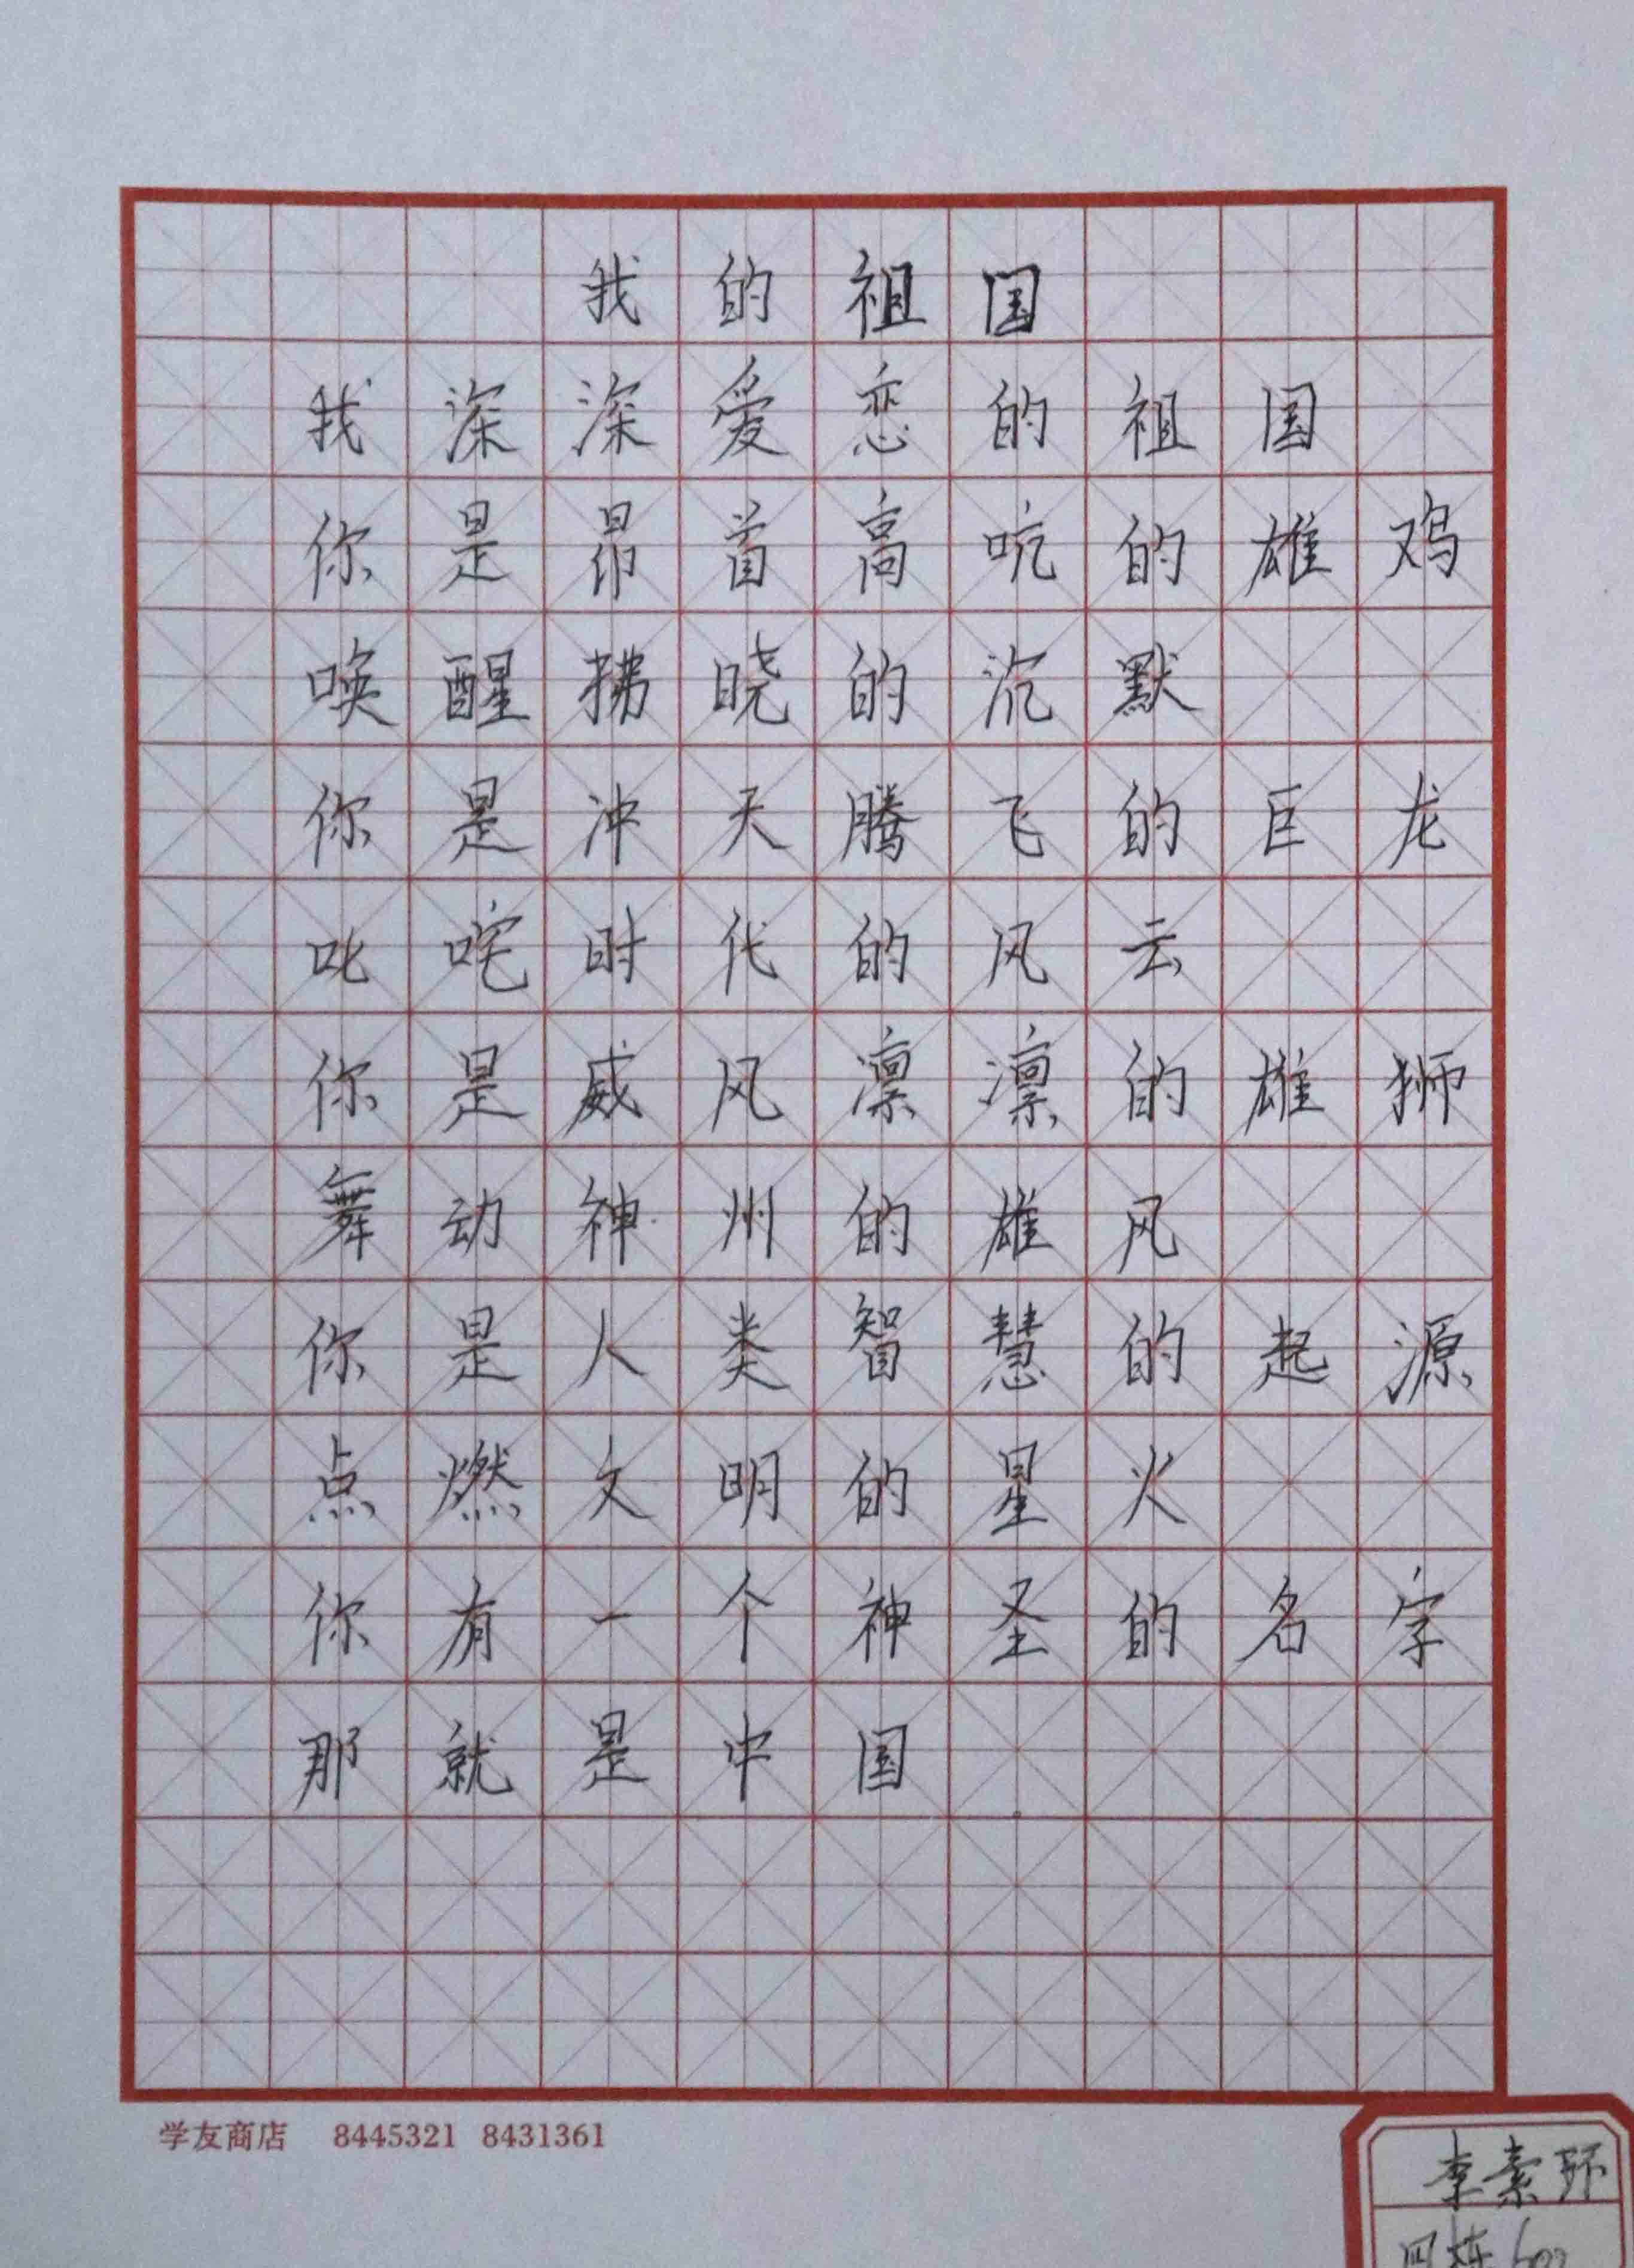 我的祖国
我深深爱恋的祖国
你是昂首高吭的雄鸡
唤醒拂晓的沉默
你是冲天腾飞的巨龙
叱咤时代的风云
你是威风凛凛的雄狮
舞动神州的雄风
你是人类智慧的起源
点燃文明的星火
你有一个神圣的名字
那就是中国
学友商店 8445321 8431361
李素环